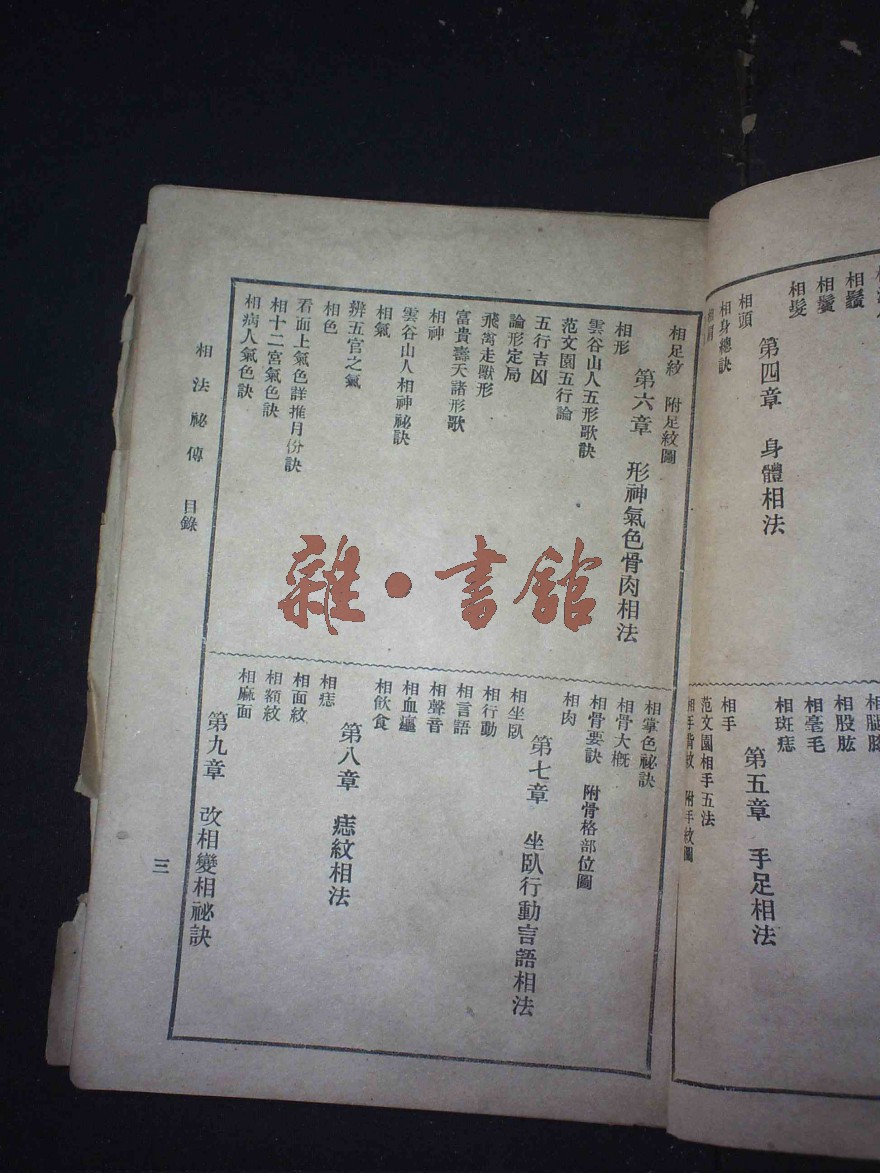 相鬚
相鬢
相髮
第四章　身體相法
相頭
相身總訣
相肩
相腿膝
相股肱
相毫毛
相斑痣
第五章　手足相法
相手
范文園相手五法
相手背紋　附手紋圖
相足紋　附足紋圖
第六章　形神氣色骨肉相法
相形
雲谷山人五形歌訣
范文園五行論
五行吉凶
論形定局
飛禽走獸形
富貴壽夭諸形歌
相神
雲谷山人相神祕訣
相氣
辨五官之氣
相色
看面上氣色詳推月份訣
相十二宮氣色訣
相病人氣色訣
相掌色祕訣
相骨大概
相骨要訣　附骨格部位圖
相肉
第七章　坐臥行動言語相法
相坐臥
相行動
相言語
相聲音
相飲食
第八章　痣紋相法
相痣
相面紋
相額紋
相麻面
第九章　改相變相祕訣
相法祕傳　目錄
三
雜·書館